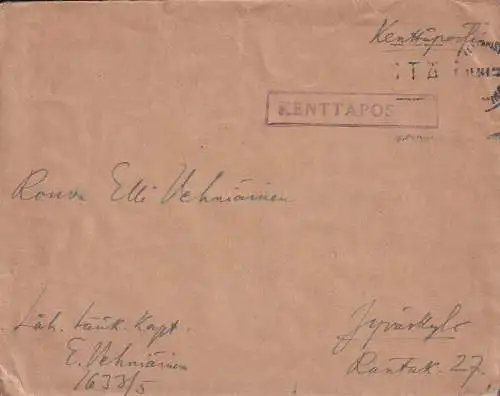 Kenttäposti
KENTTÄPOS
Rouva Elli Vehniäinen
Läh. Kapt.
E. Vehniäinen
1633/5
Jyväskylä
Rantak. 27.